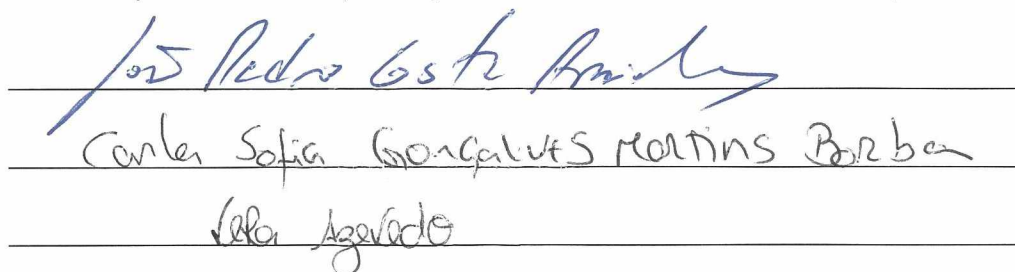 João Pedro Costa
Carla Sofia Gonçalves Martins Borba
Vera Azevedo